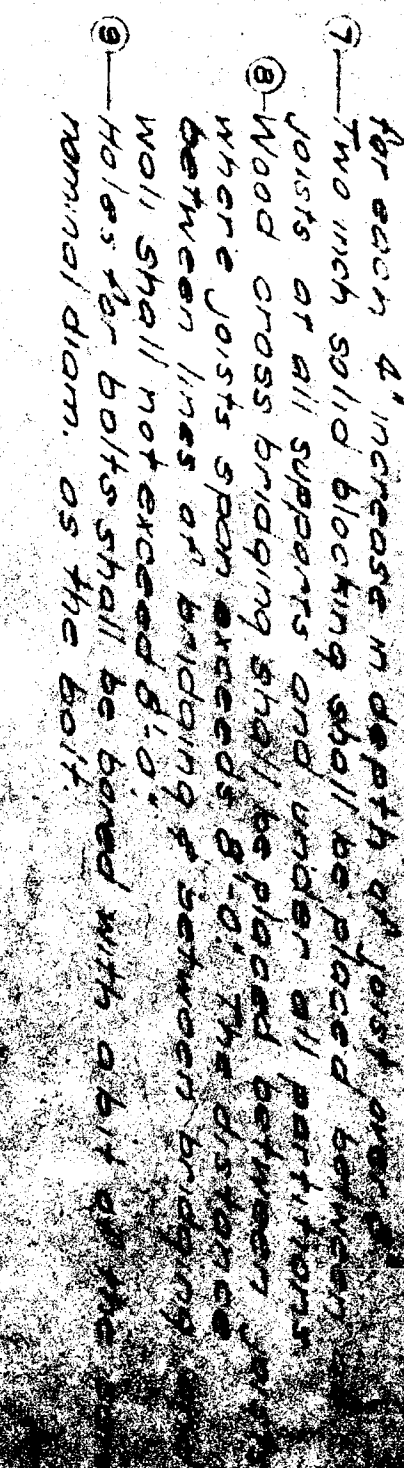 for each 4" increase in depth of joist over
7 Two inch solid blocking shall be placed between
joists at all supports and under all partitions
8 Wood cross bridging shall be placed between joists
where joists span exceeds 8'-0". The distance
between lines of bridging & between bridging and
wall shall not exceed 8'-0".
9 Holes for bolts shall be bored with a bit of the same
nominal diam. as the bolt.